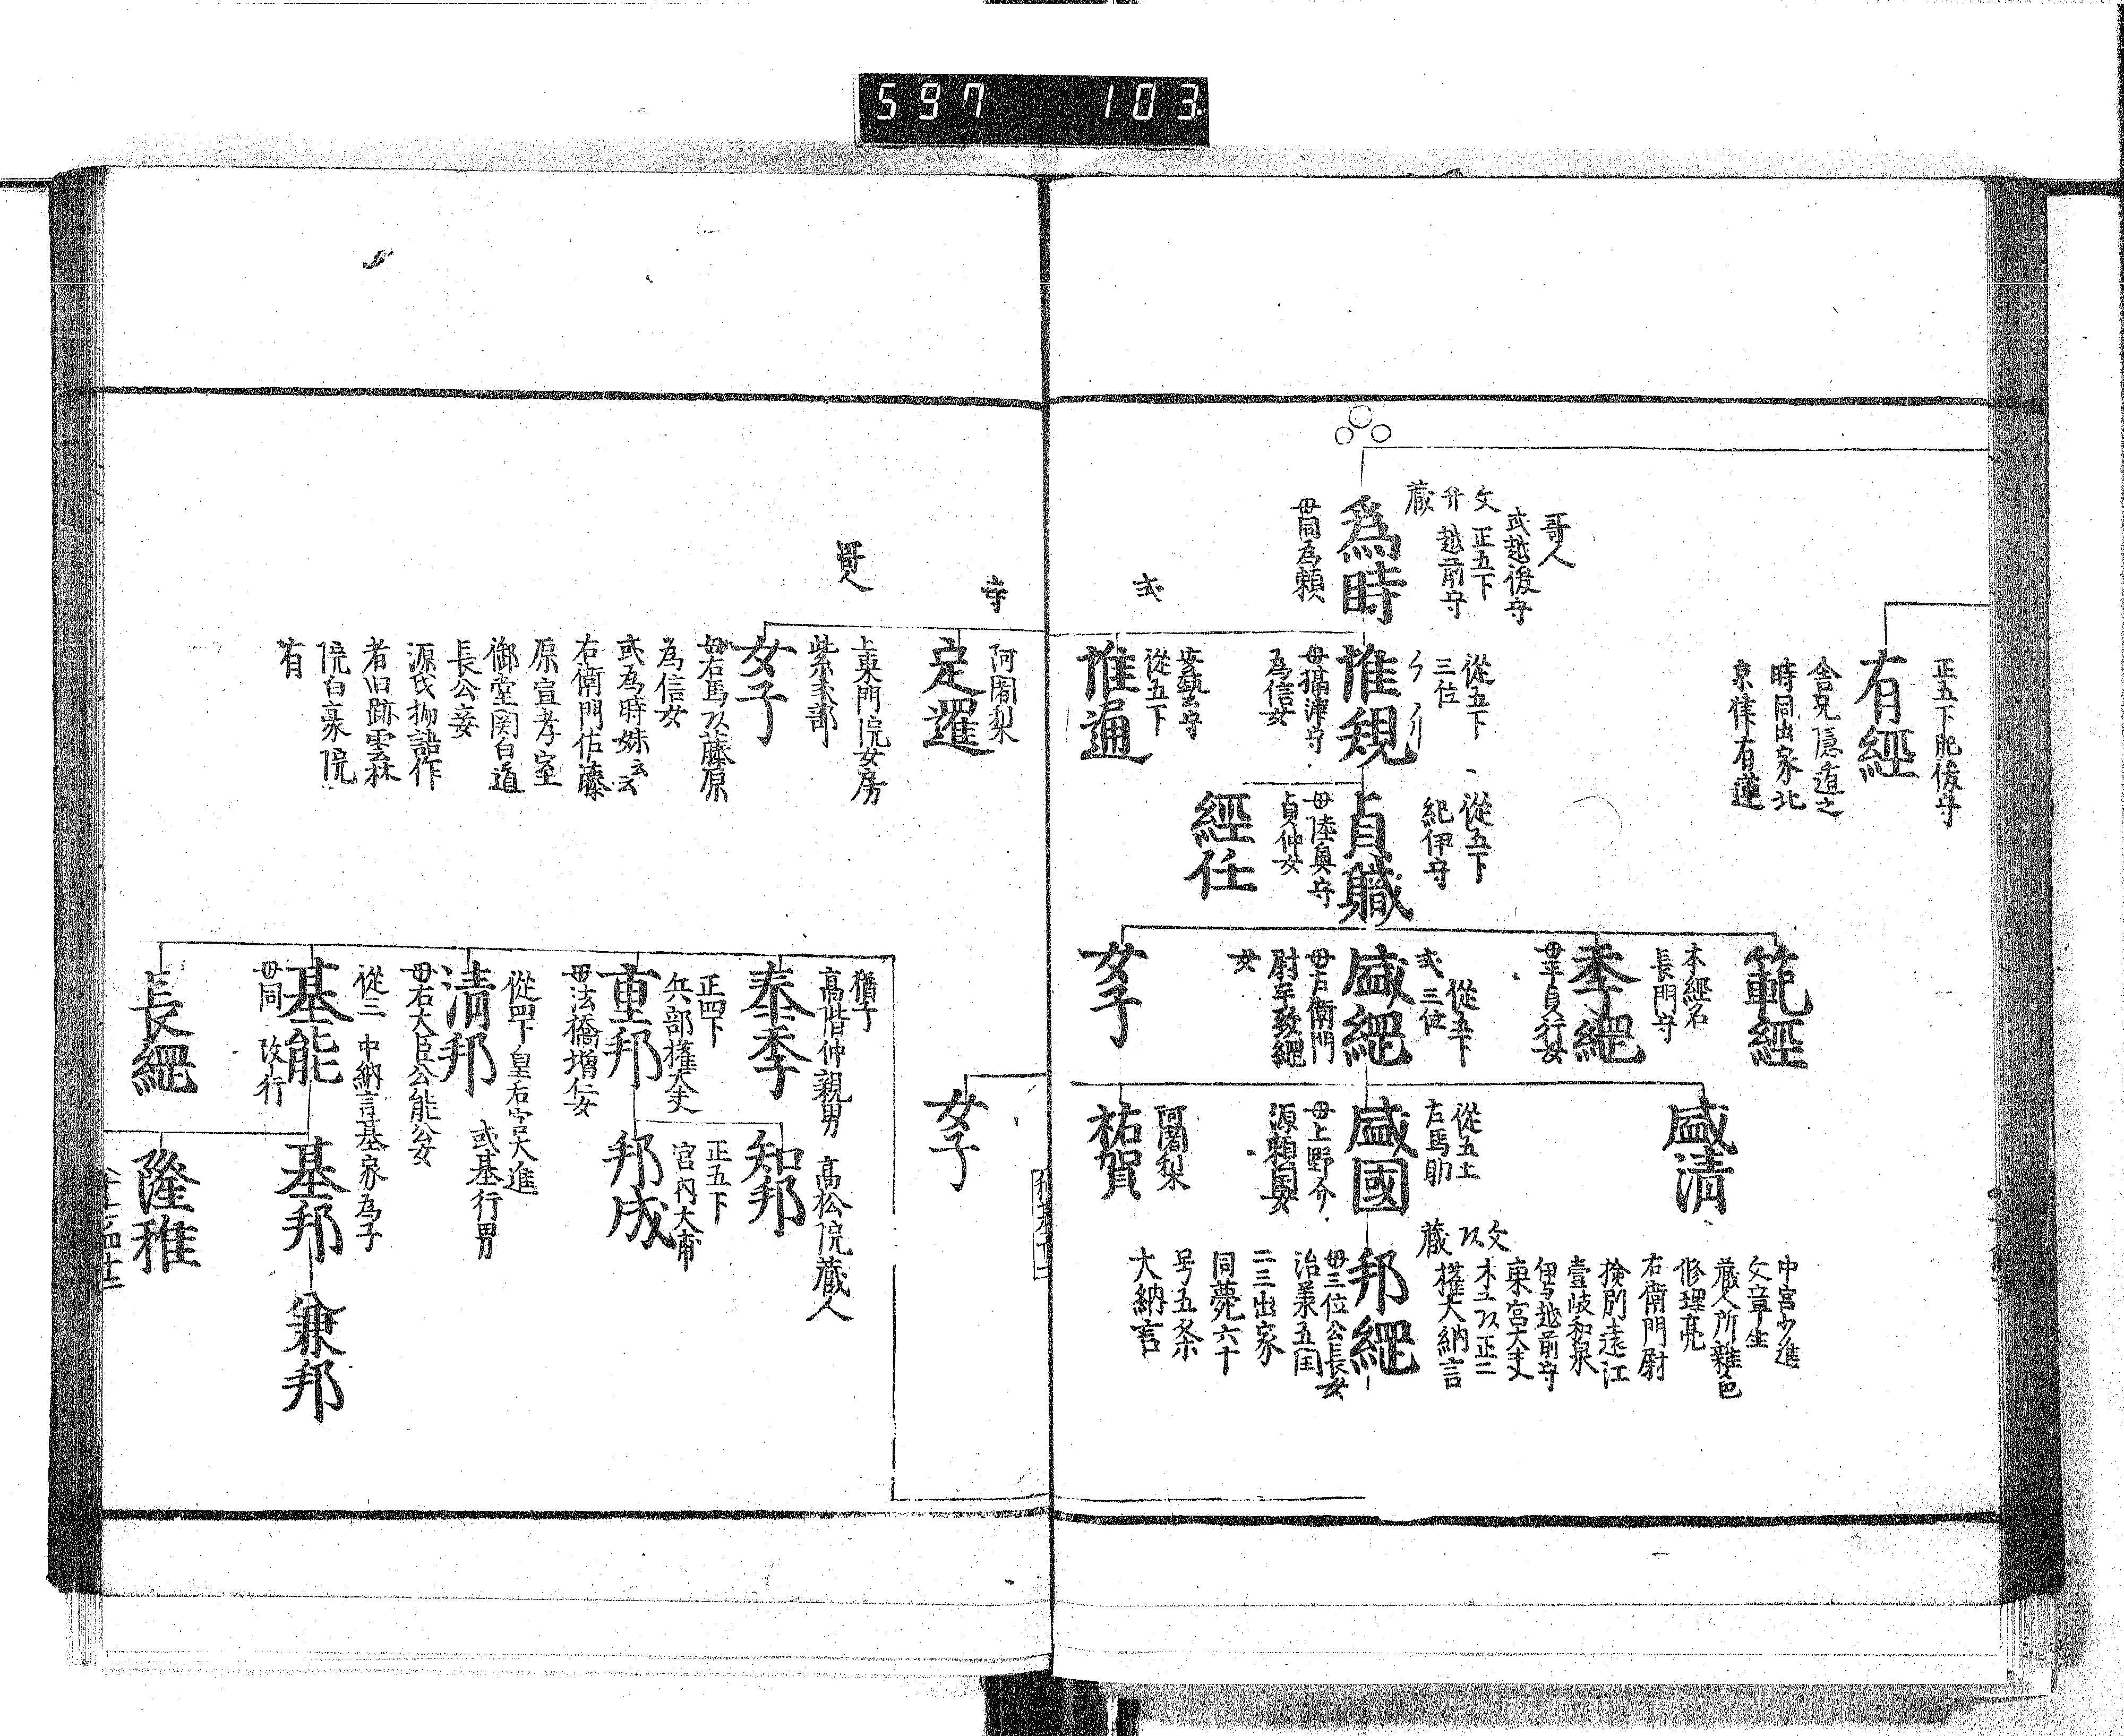 597 103
正五下肥後守
有經
舎兄隠遁之
時同出家北
京律有蓮
哥人
或越後守
文 正五下
介 越前守
蔵
爲時
母同為頼
從五下
三位
惟規
母攝津守
為信女
安藝守
從五下
惟通
從五下
紀伊守
貞職
母陸奥守
貞仲女
經任
範經
本經名
長門守
季綱
母平貞行女
從五下
三位
盛綱
母右衛門
尉平致綱
女
女子
盛清
從五上
右馬助
盛國
母上野介
源頼国女
阿闍梨
祐賀
中宮少進
文章生
蔵人所雑色
修理亮
右衛門尉
検別遠江
壹岐和泉
伊与越前守
東宮大夫
木工以正二
權大納言
文
蔵
邦綱
母三位公長女
治承五閏
二三出家
同薨六十
号五条
大納言
寺
阿闍梨
定暹
哥人
上東門院女房
紫式部
女子
母右馬以藤原
為信女
或為時妹云云
右衛門佐藤
原宣孝室
御堂関白道
長公妾
源氏物語作
者旧跡雲森
院白豪院
有
女子
猶子
高階仲親男 高松院蔵人
泰季
正四下
兵部權大夫
重邦
母法橋増仁女
知邦
正五下
宮内大甫
邦成
從四下皇右宮大進
或基行男
清邦
母右大臣公能公女
從三 中納言基家為子
基能
母同 改行
基邦
兼邦
長綱
隆稚